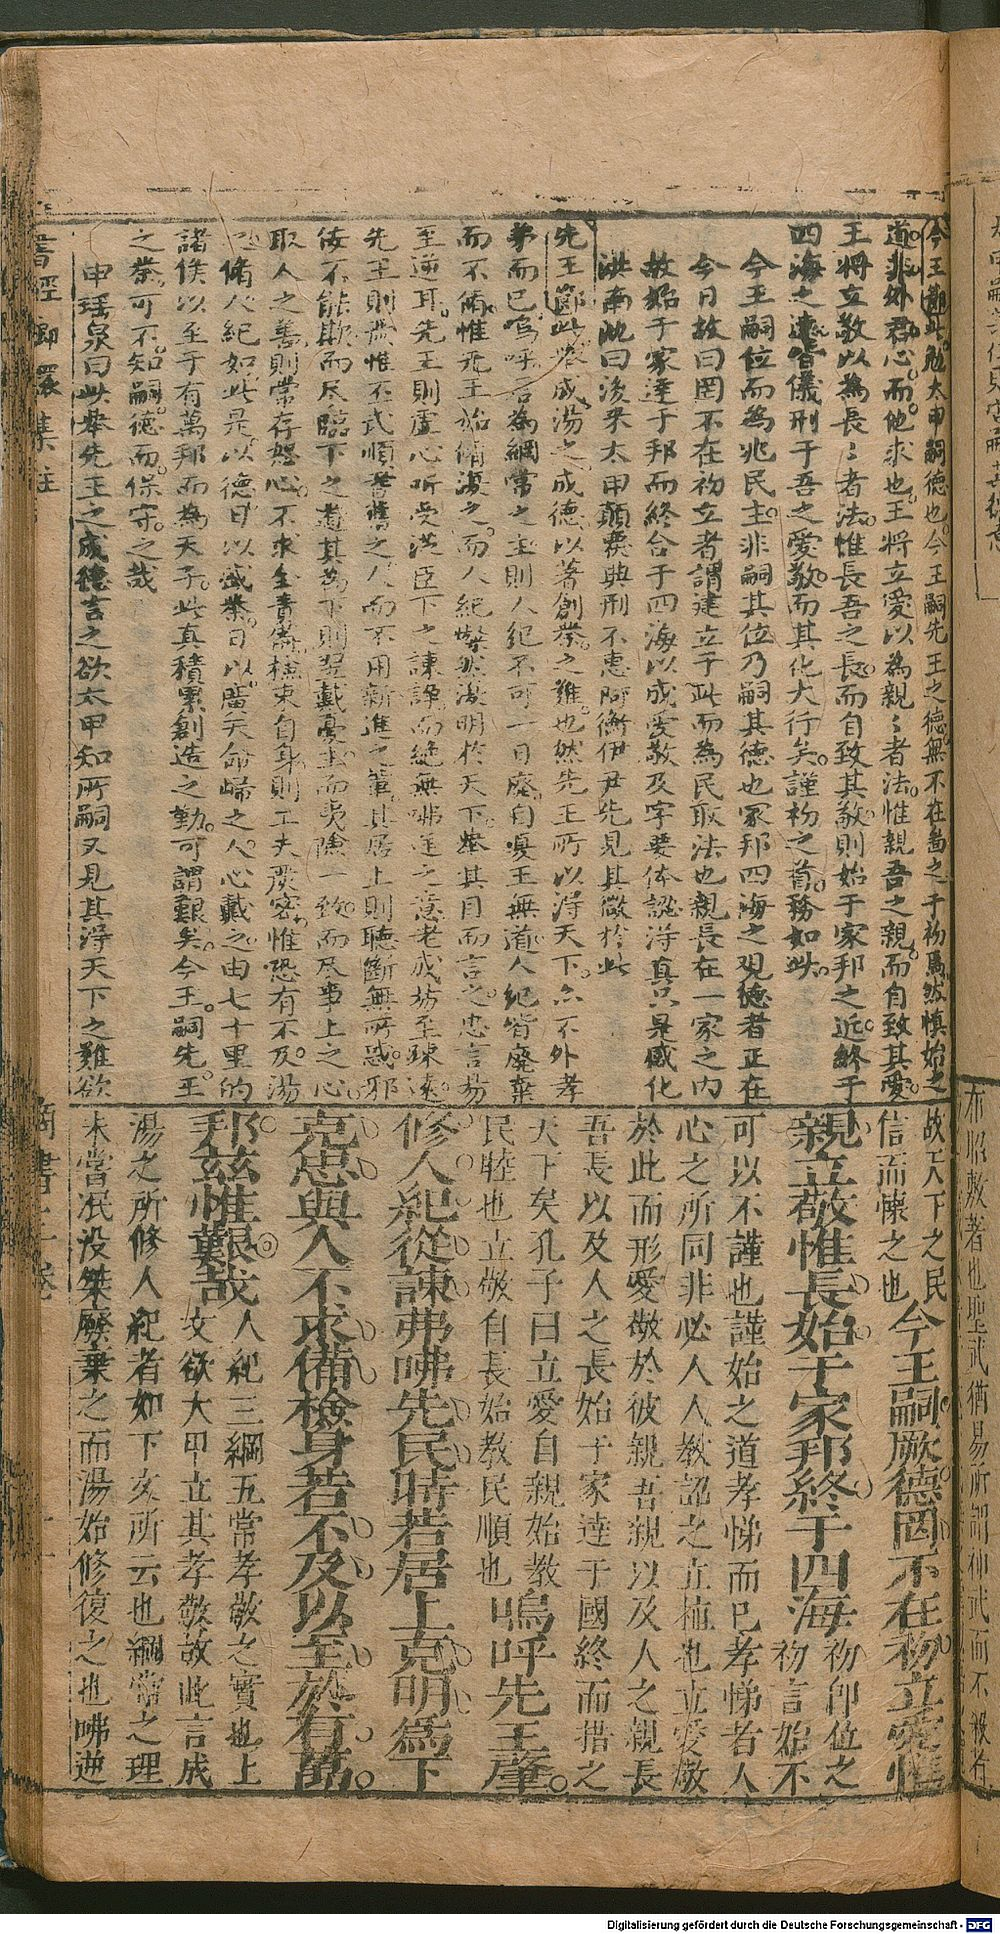 今王節此勉太甲嗣德也今王嗣先王之德無不在善之于初焉然慎始之
道非外君心而他求也王將立愛以為親〻者法惟親吾之親而自致其愛
王將立敬以為長〻者法惟長吾之長而自致其敬則始于家邦之近終于
四海之遠皆儀刑于吾之愛敬而其化大行矣謹初之首務如此
今王嗣位而為兆民主非嗣其位乃嗣其德也家邦四海之观德者正在
今日故曰罔不在初立者謂建立于此而為民取法也親長在一家之内
故始于家達于邦而終合于四海以成愛敬及字要体認淂真只是感化
洪南池曰後来太甲顛覆典刑不惠阿衡伊尹先見其微於此
先王節此表成湯之成德以著創業之難也然先王所以淂天下亦不外孝
弟而已嗚呼君為綱常之主則人紀不可一日廢自夏王無道人紀皆廢棄
而不脩惟先王始脩復之而人紀燦然復明於天下舉其目而言之忠言易
至逆耳先王則虛心听受従臣下之諫諍而絕無咈逆之意老成易至疎遠
先王則惟不式順耆舊之人而不用新進之軰其居上則聽斷無所惑邪
侫不能欺而尽臨下之道其為下則翌戴憂主而夷險一致而尽事上之心
取人之善則常存恕心不求全責備檢束自身則工夫嚴密惟恐有不及湯
之脩人紀如此是以德日以盛業日以廣天命歸之人心戴之由七十里的
諸侯以至于有萬邦而為天子此真積累創造之勤可謂艱矣今王嗣先王
之業可不知嗣德而保守之哉
申瑶泉曰此舉先王之成德言之欲太甲知所嗣又見其淂天下之難欲
故天下之民
信而懷之也
今王嗣厥德罔不在初立愛惟
親立敬惟長始于家邦終于四海
初即位之
初言始不
可以不謹也謹始之道孝悌而已孝悌者人
心之所同非必人人教詔之立植也立愛敬
於此而形愛敬於彼親吾親以及人之親長
吾長以及人之長始于家達于國終而措之
天下矣孔子曰立愛自親始教
民睦也立敬自長始教民順也
嗚呼先王肇
修人紀從諫弗咈先民時若居上克明為下
克忠與人不求備檢身若不及以至於有萬
邦茲惟艱哉
人紀三綱五常孝敬之實也上
文欲太甲立其孝敬故此言成
湯之所修人紀者如下文所云也綱常之理
未嘗泯没桀廢棄之而湯始修復之也咈逆
書經
集註
商書
卷
Digitalisierung gefördert durch die Deutsche Forschungsgemeinschaft - DFG
布昭敷著也聖武猶易所謂神武而不殺者